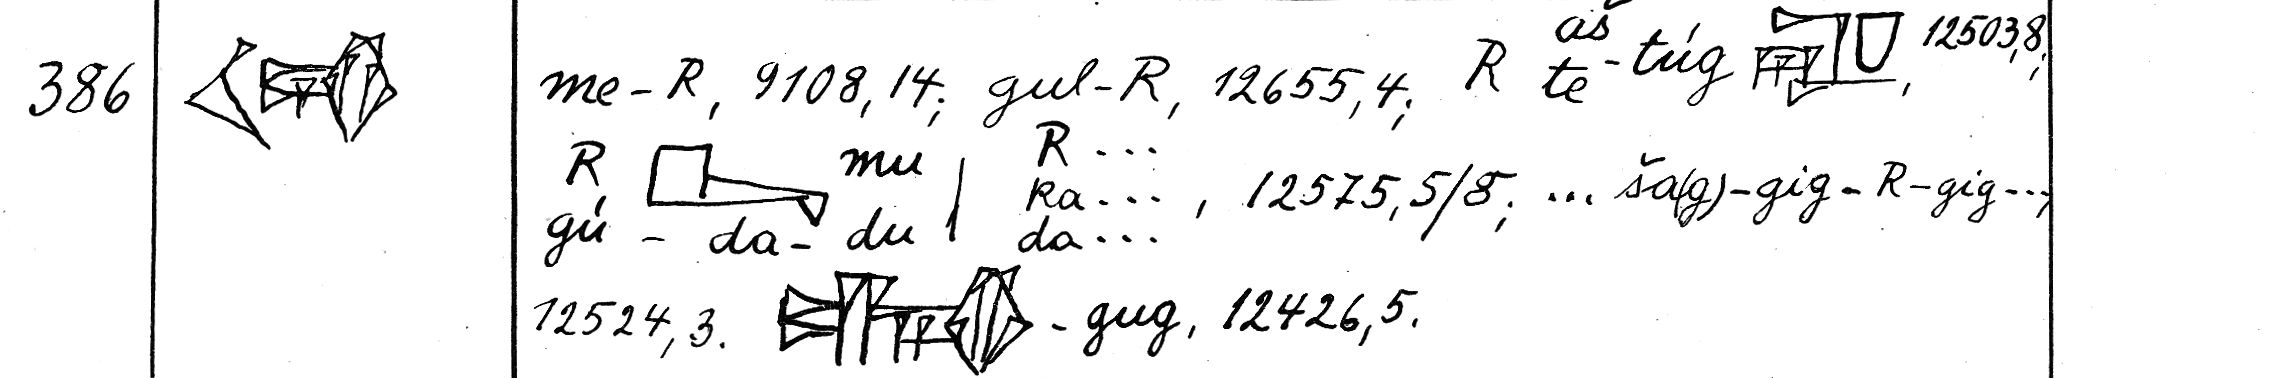 386 me-R, 9108,14; gul-R, 12655,4; R aš te -túg, 12503,8;
R mu | R ...
gú - da - du ka ... da ..., 12575,5/8; ... ša(g)-gig-R-gig...,
12524,3. -gug, 12426,5.